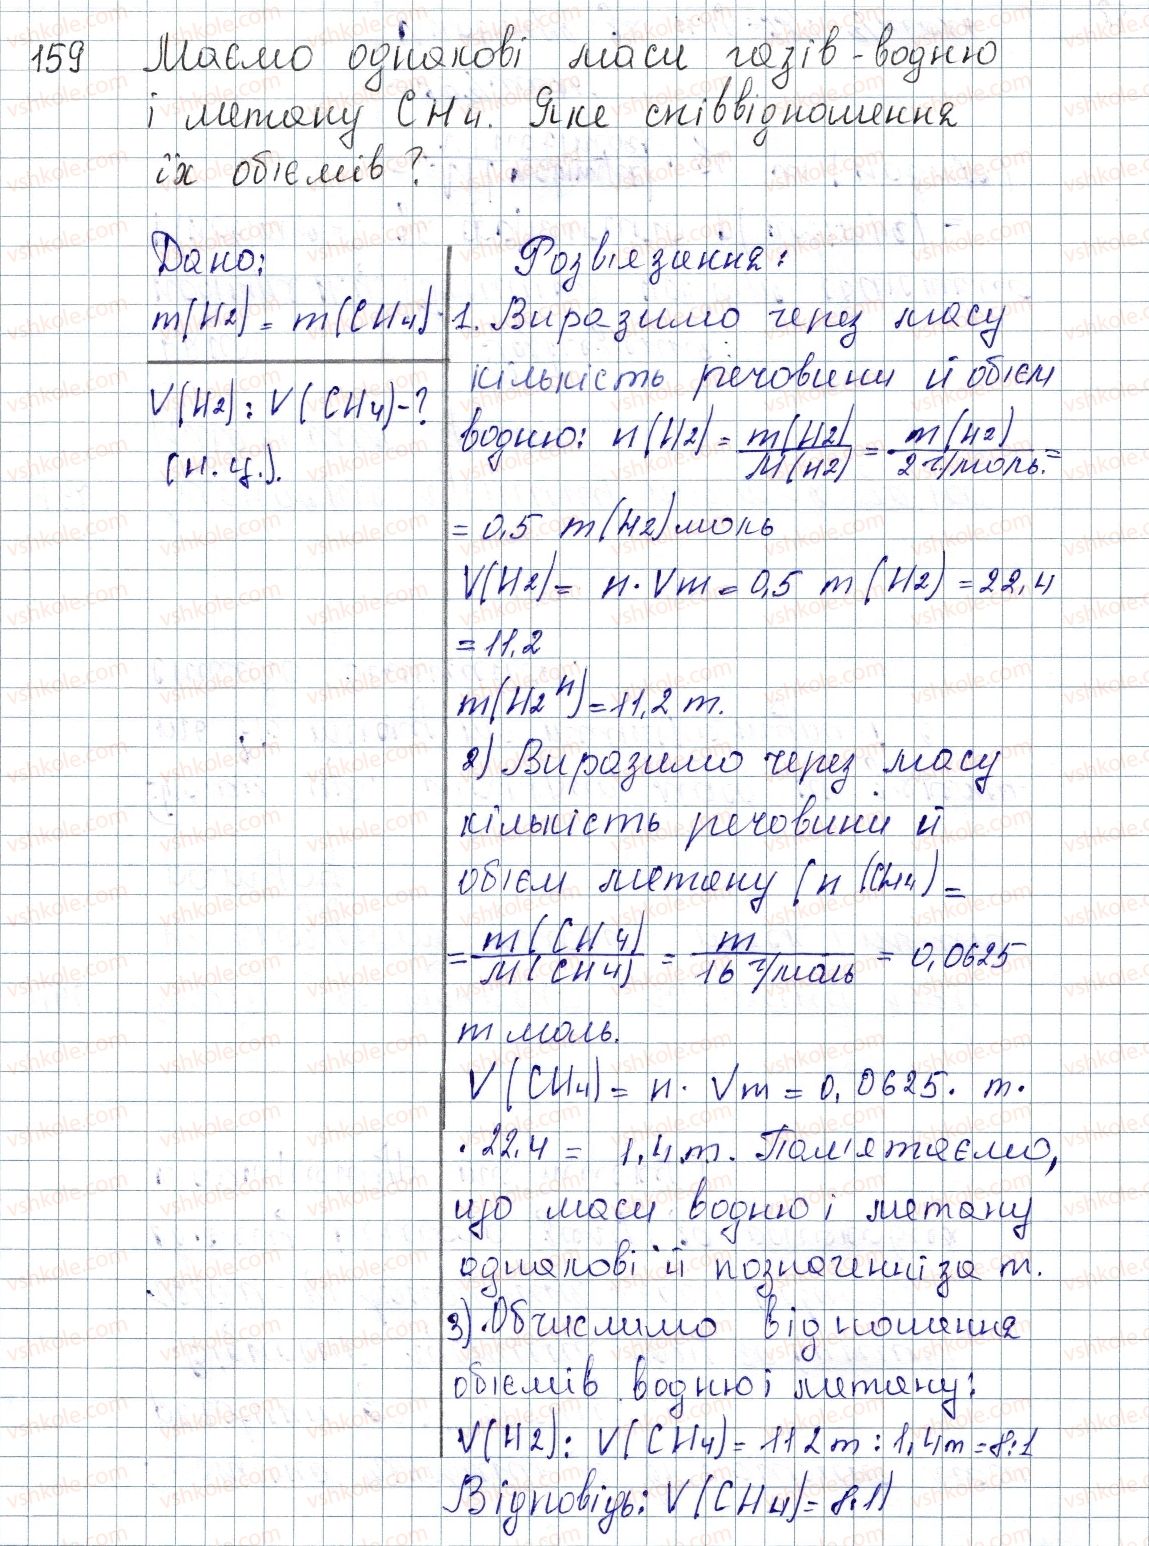 159 Маємо однакові маси газів - водню
і метану CH4. Яке співвідношення
їх об'ємів?
Дано:
m(H2) = m(CH4)
V(H2) : V(CH4) - ?
(н.у.).
Розв'язання:
1. Виразимо через масу
кількість речовини й об'єм
водню: n(H2) = m(H2)/M(H2) = m(H2)/2 г/моль. =
= 0,5 m(H2) моль
V(H2) = n · Vm = 0,5 m(H2) = 22,4
= 11,2
m(H2 н) = 11,2 m.
2) Виразимо через масу
кількість речовини й
об'єм метану (n(CH4) =
= m(CH4)/M(CH4) = m/16 г/моль = 0,0625
m моль.
V(CH4) = n · Vm = 0,0625 · m ·
· 22,4 = 1,4 m. Пам'ятаємо,
що маси водню і метану
однакові й позначенні за m.
3). Обчислимо відношення
об'ємів водню і метану:
V(H2) : V(CH4) = 112 m : 1,4 m = 8:1
Відповідь: V(CH4) = 8:1)